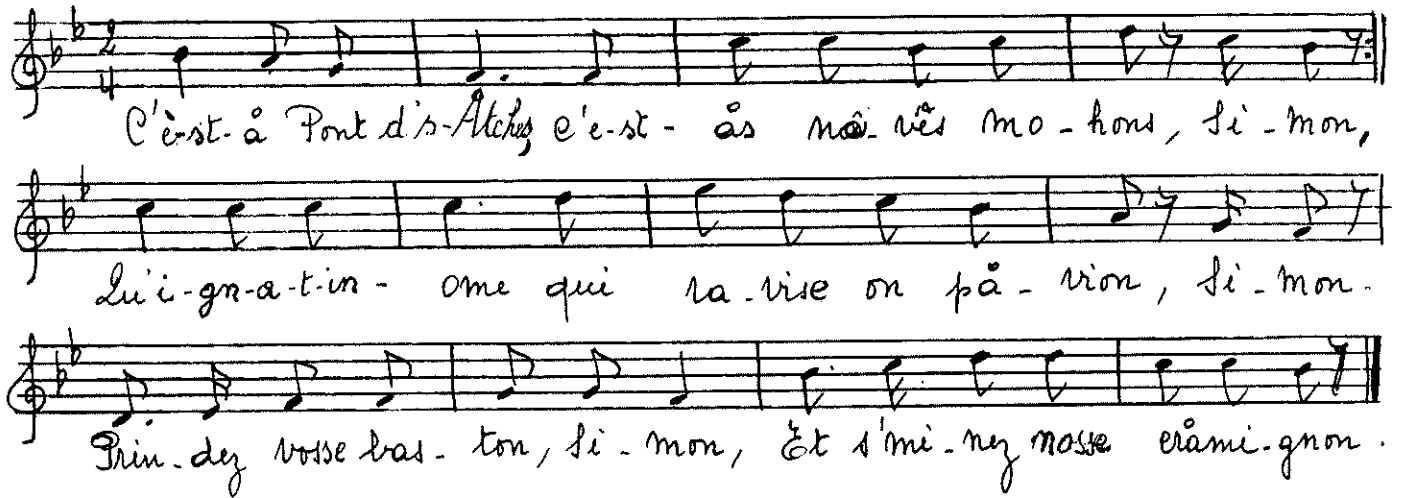 2
4
C'è-st-å Pont d's-Åtches, c'e-st-ås nâ-vès mo-hons, Si-mon,
Qu'i-gn-a-t-in-ome qui ra-vise on på-vion, Si-mon.
Prin-dez vosse bas-ton, Si-mon, Et s'mi-nez nosse cråmi-gnon.